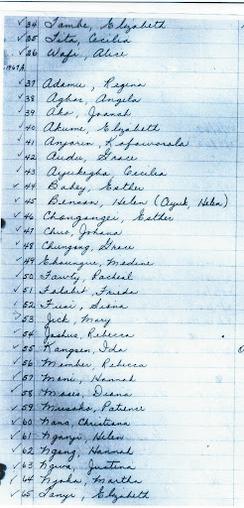 ✓34 Tambe, Elizabeth
✓35 Tita, Cecilia
✓36 Wafi, Alice
1967A
✓37 Adamu, Regina
✓38 Agbor, Angela
✓39 Ako,
✓40 Akume, Elizabeth
✓41
✓42 Audu, Grace
✓43 Ayukegba, Cecilia
✓44 Bakey, Esther
✓45 Benson, Helen (Ayuk, Helen)
✓46 Esther
✓47 Chuo, Johana
✓48 Chungong, Grace
✓49 Ekoungue, Medine
✓50 Fawty, Racheal
✓51 Frieda
✓52 Fusi, Diana
✓53 Jick, Mary
✓54 Joshua, Rebecca
✓55 Kangsen, Ida
✓56 Rebecca
✓57 Hannah
✓58 Moses, Diana
✓59 Musoko, Patience
✓60 Nana, Christiana
✓61 Nganyi, Helen
✓62 Ngang, Hannah
✓63 Ngwa, Justina
✓64 Ngoka, Martha
✓65 Tanyi, Elizabeth